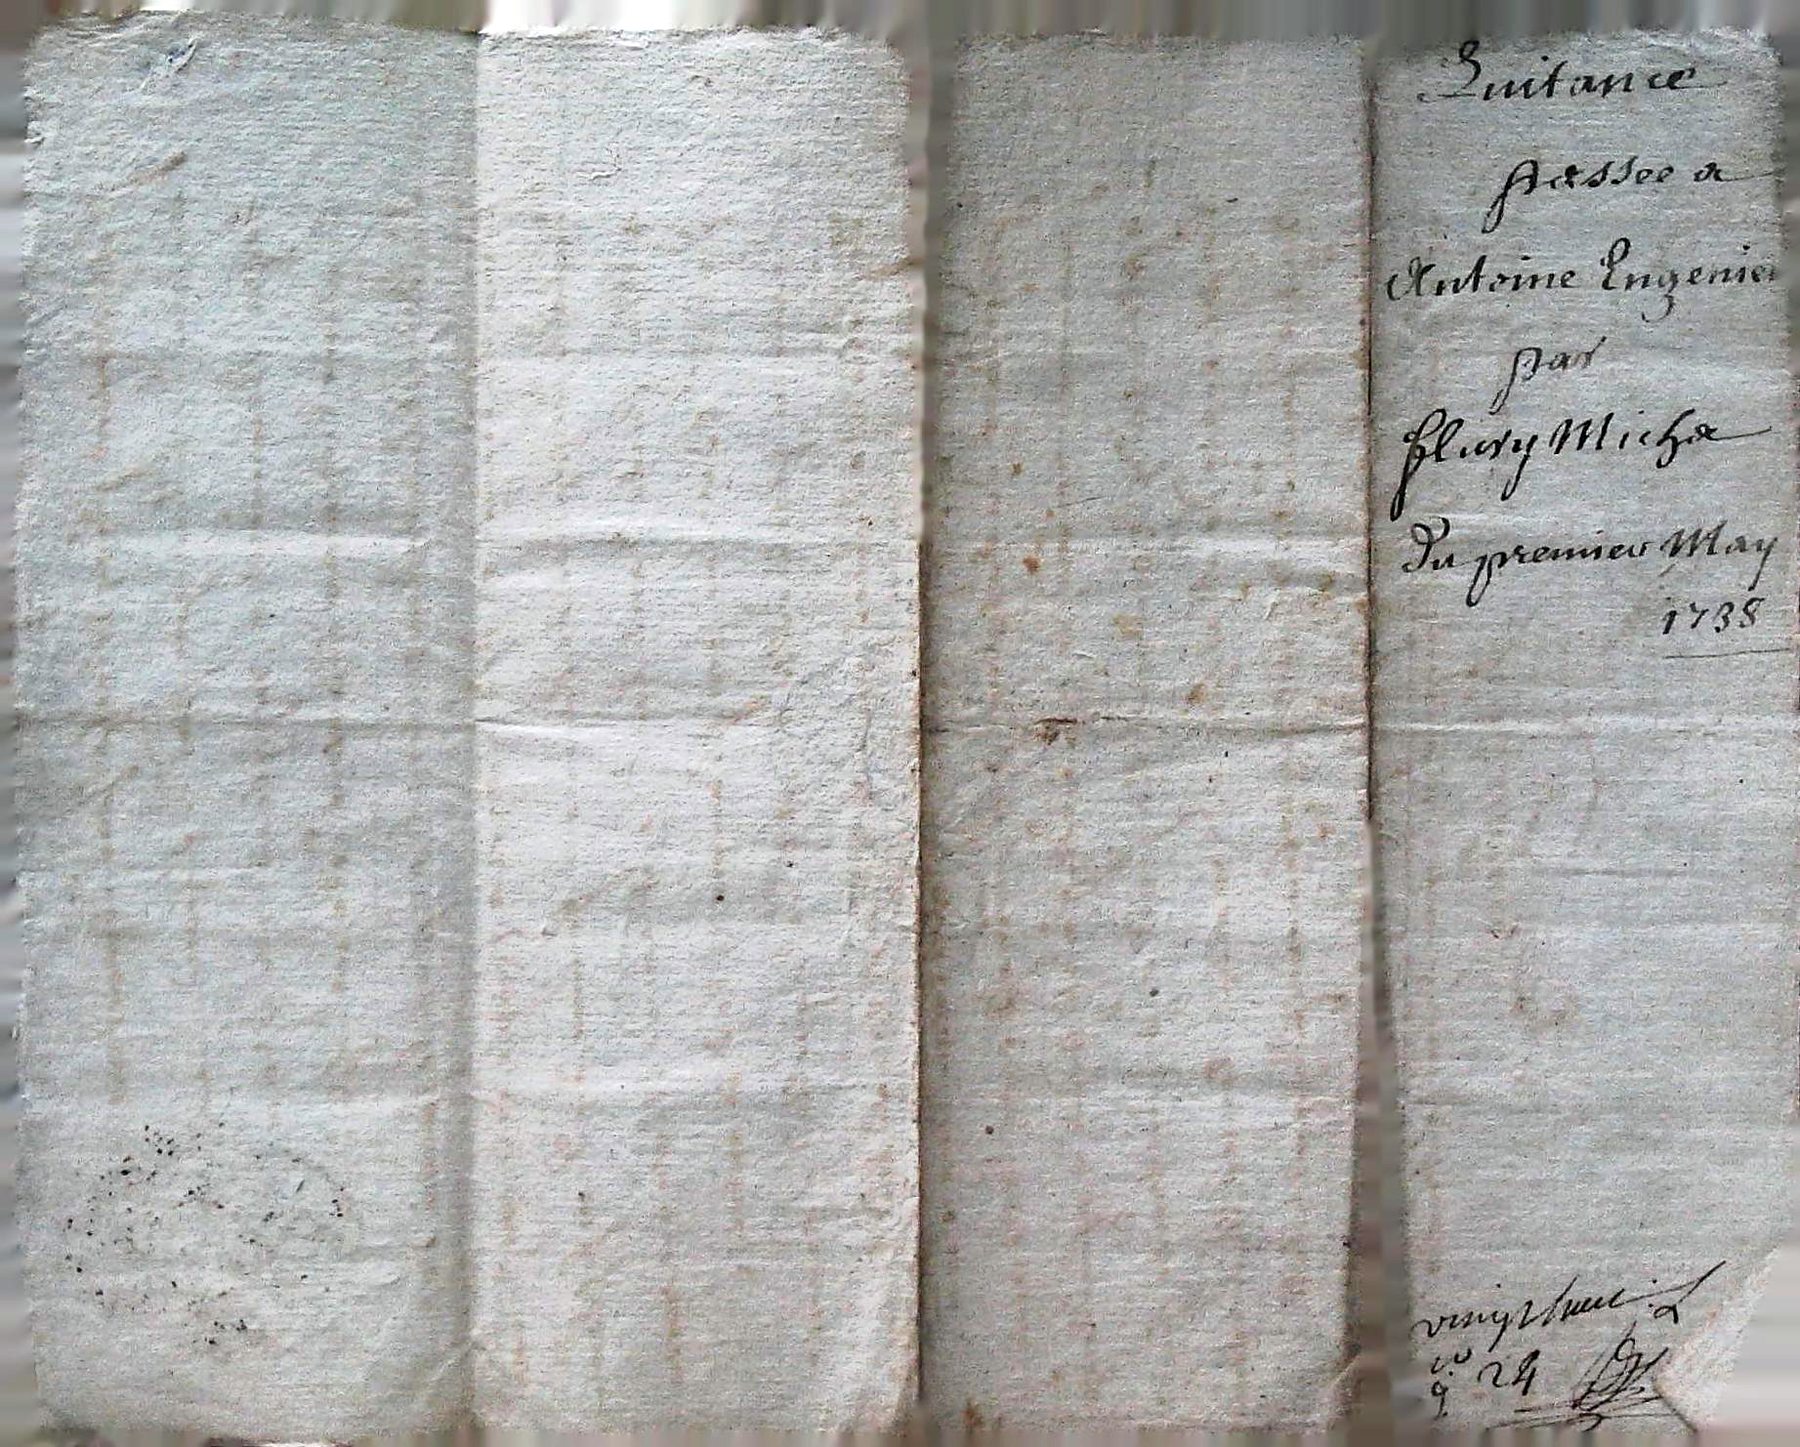 Quitance
passee a
Antoine Engenier
par
fleury Micha
Du premier May
1738
24